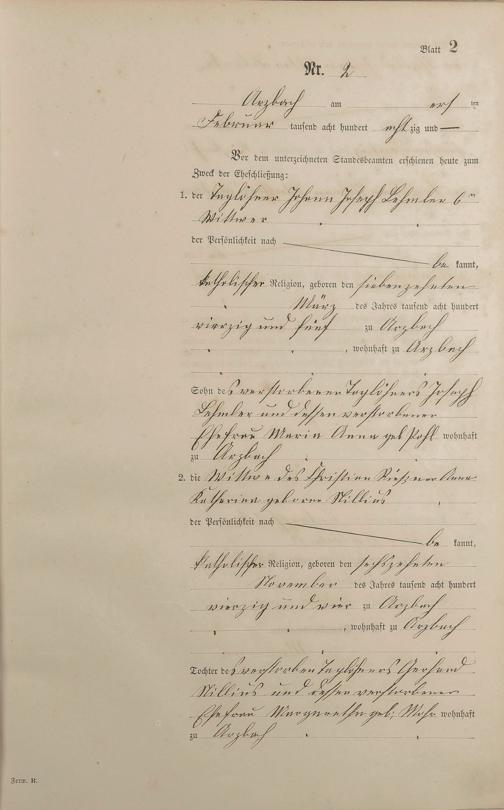 Blatt 2
Nr. 2
Arzbach am ersten
Februar tausend acht hundert achtzig und —
Vor dem unterzeichneten Standesbeamten erschienen heute zum
Zweck der Eheschließung:
1. der Taglöhner Johann Joseph Lehmler 6n
Wittwer
der Persönlichkeit nach
be kannt,
katholischer Religion, geboren den siebenzehnten
März des Jahres tausend acht hundert
vierzig und fünf zu Arzbach
, wohnhaft zu Arzbach
Sohn des verstorbenen Taglöhners Joseph
Lehmler und dessen verstorbener
Ehefrau Maria Anna geb Pohl wohnhaft
zu Arzbach
2. die Wittwe des Christian Anna
Katharina geborne Nillius
der Persönlichkeit nach
be kannt,
katholischer Religion, geboren den sechszehnten
November des Jahres tausend acht hundert
vierzig und vier zu Arzbach
, wohnhaft zu Arzbach
Tochter des verstorben Taglöhners Gerhard
Nillius und dessen verstorbener
Ehefrau Margaretha geb: wohnhaft
zu Arzbach
Form. H.